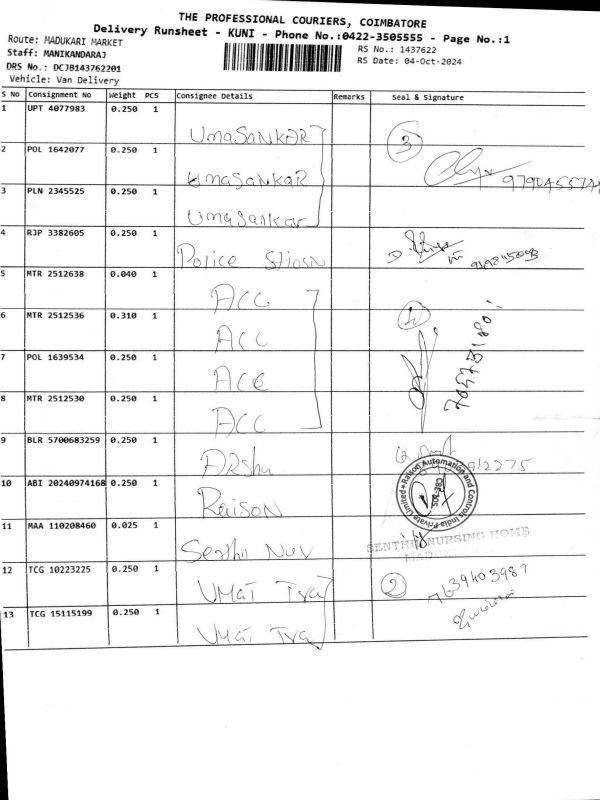 THE PROFESSIONAL COURIERS, COIMBATORE
Delivery Runsheet - KUNI - Phone No.:0422-3505555 - Page No.:1
Route: MADUKARI MARKET
RS No.: 1437622
Staff: MANIKANDARAJ
RS Date: 04-Oct-2024
DRS No.: DCJB143762201
Vehicle: Van Delivery
S No Consignment No Weight PCS Consignee Details Remarks Seal & Signature
1 UPT 4077983 0.250 1 UmaSANKAR 3
2 POL 1642077 0.250 1 UmaSANKAR
3 PLN 2345525 0.250 1 Umasankar
4 RJP 3382605 0.250 1 Police
5 MTR 2512638 0.040 1 ACC
6 MTR 2512536 0.310 1 ACC
7 POL 1639534 0.250 1 ACC
8 MTR 2512530 0.250 1 ACC
9 BLR 5700683259 0.250 1
10 ABI 20240974168 0.250 1 RaiSON Raison Automation and Controls India Private Limited
11 MAA 110208460 0.025 1 SENTHIL NURSING HOME
12 TCG 10223225 0.250 1 UMai Tra 2 7639403987
13 TCG 15115199 0.250 1 UMai Tra